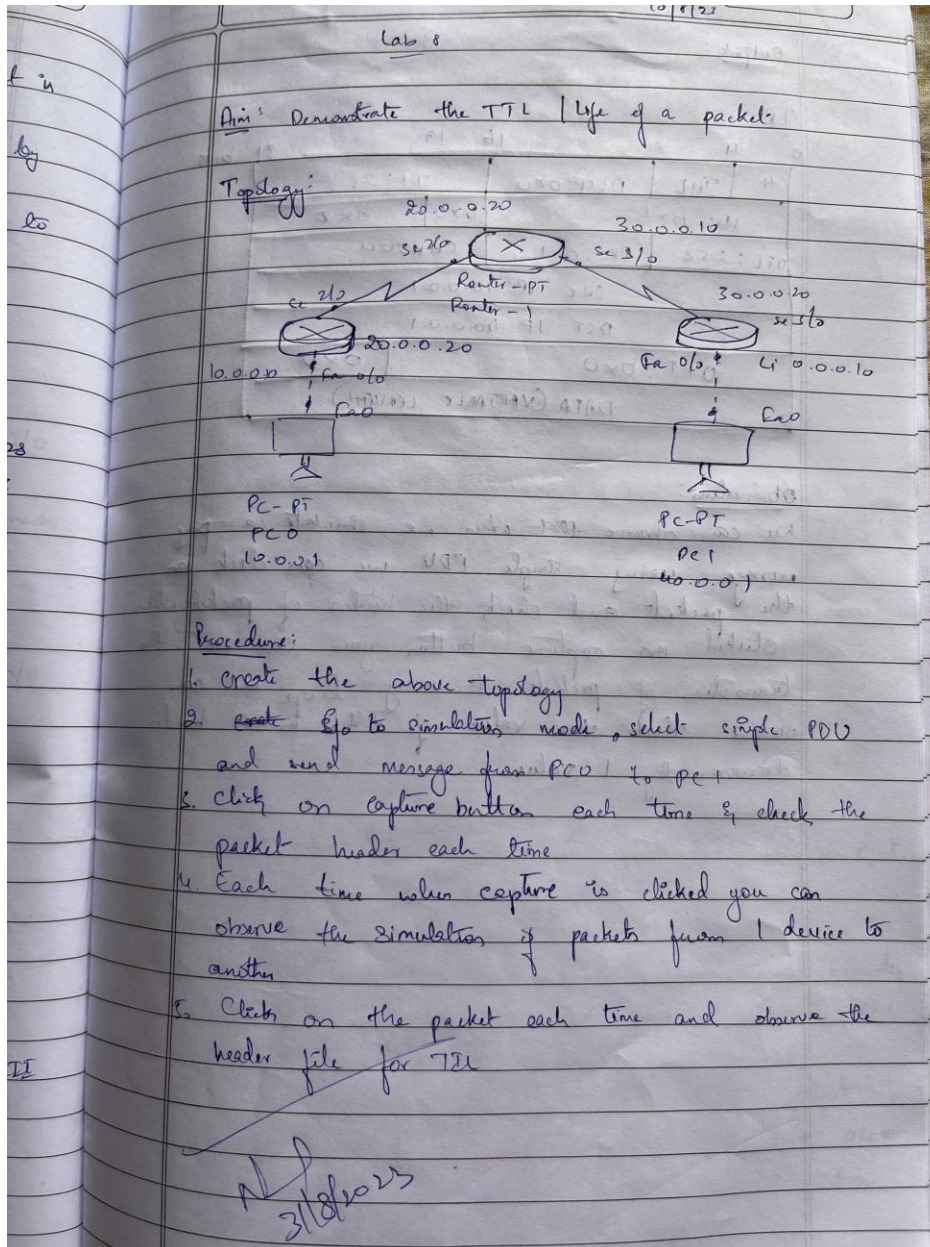 10/8/23
Lab 8
t is
Aim: Demonstrate the TTL / Life of a packet.
by
Topology:
to
20.0.0.20
30.0.0.10
se 2/0
se 3/0
Router-PT
Router-1
se 2/0
30.0.0.20
se 3/0
20.0.0.20
10.0.0.10
Fa 0/0
Fa 0/0
40.0.0.10
Fa0
Fa0
28
PC-PT
PC-PT
PC0
PC1
10.0.0.1
40.0.0.1
Procedure:
1. create the above topology
2. Go to simulation mode, select simple PDU
and send message from PC0 to PC1
3. Click on capture button each time & check the
packet header each time
4. Each time when capture is clicked you can
observe the simulation of packets from 1 device to
another
5. Click on the packet each time and observe the
header file for TTL
II
31/8/2023